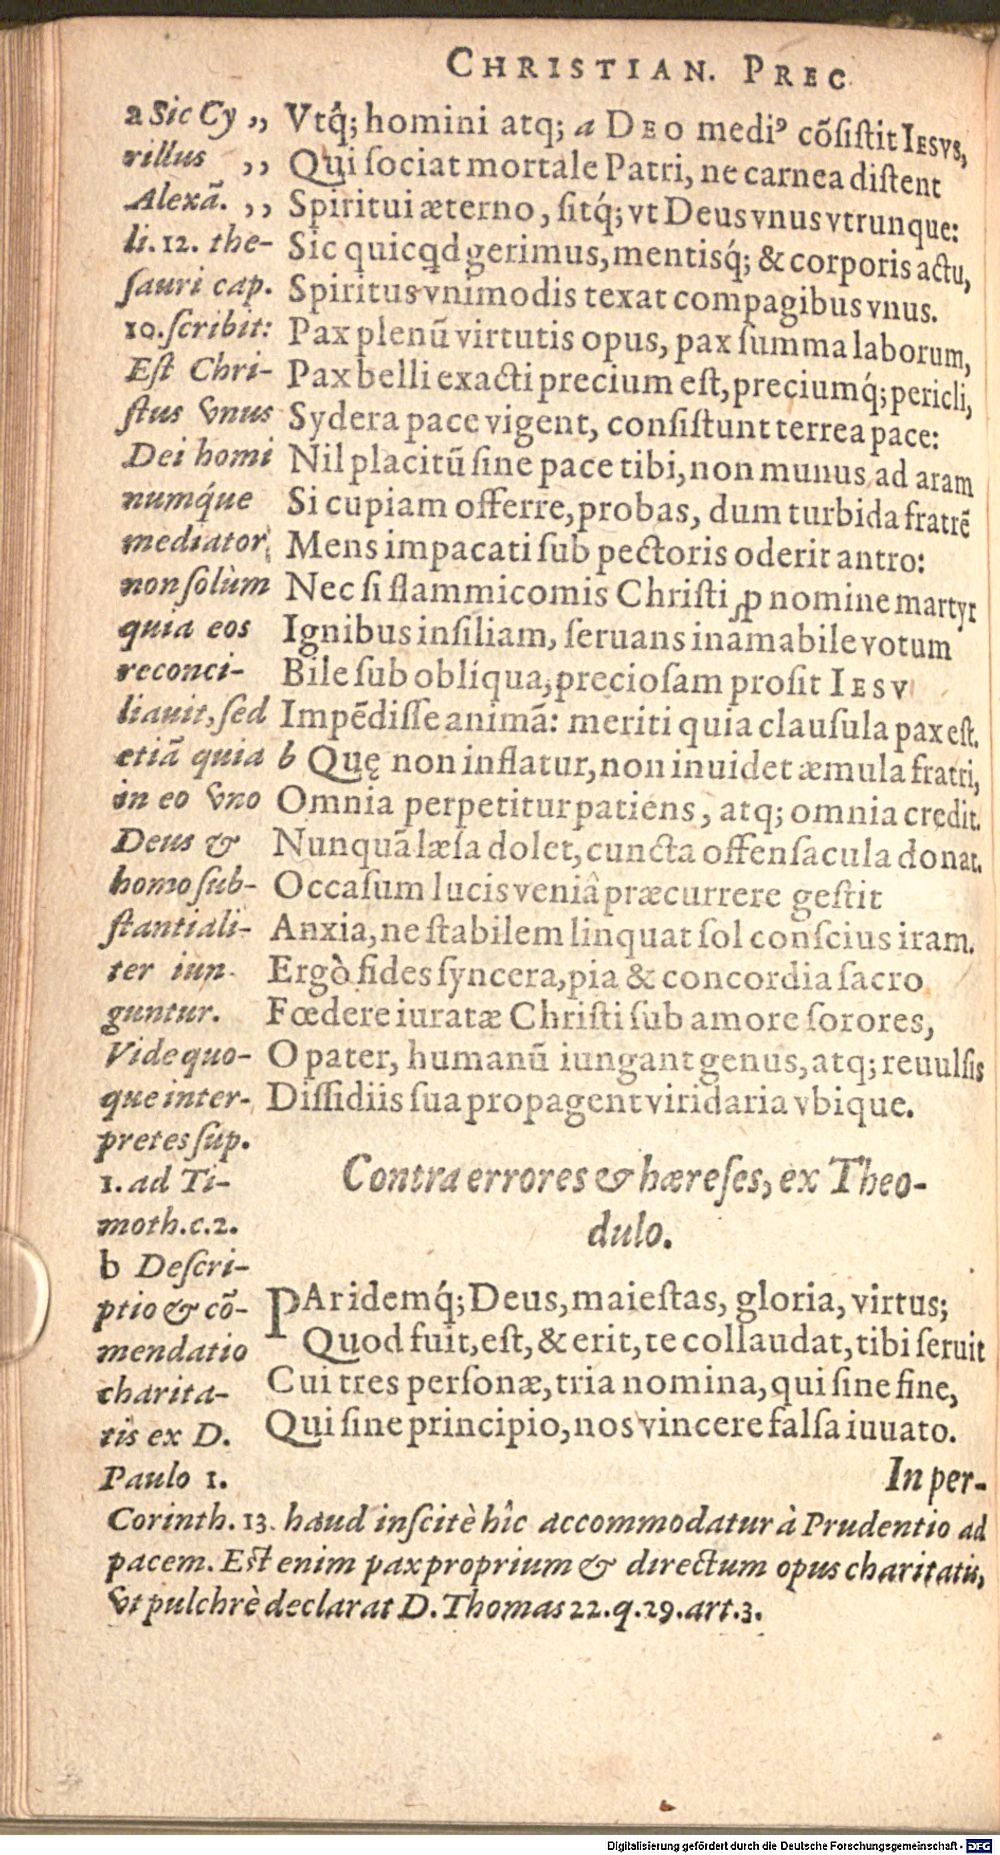 CHRISTIAN. PREC
Vtq́; homini atq; a DEO mediꝰ cõsistit IESVS,
Qui sociat mortale Patri, ne carnea distent
Spiritui æterno, sitq́; vt Deus vnus vtrunque:
Sic quicqd gerimus, mentisq́; & corporis actu,
Spiritus vnimodis texat compagibus vnus.
Pax plenũ virtutis opus, pax summa laborum,
Pax belli exacti precium est, preciumq́; pericli,
Sydera pace vigent, consistunt terrea pace:
Nil placitũ sine pace tibi, non munus ad aram
Si cupiam offerre, probas, dum turbida fratrẽ
Mens impacati sub pectoris oderit antro:
Nec si flammicomis Christi ꝓ nomine martyr
Ignibus insiliam, seruans inamabile votum
Bile sub oblíqua, preciosam prosit IESV
Impẽdisse animã: meriti quia clausula pax est.
b Quę non inflatur, non inuidet æmula fratri,
Omnia perpetitur patiens, atq; omnia credit.
Nunquã læsa dolet, cuncta offensacula donat.
Occasum lucis veniâ præcurrere gestit
Anxia, ne stabilem linquat sol conscius iram.
Ergò fides syncera, pia & concordia sacro
Fœdere iuratæ Christi sub amore sorores,
O pater, humanũ iungant genus, atq; reuulsis
Dissidiis sua propagent viridaria vbique.
Contra errores & hæreses, ex Theo-
dulo.
PAr idemq́; Deus, maiestas, gloria, virtus;
Quod fuit, est, & erit, te collaudat, tibi seruit
Cui tres personæ, tria nomina, qui sine fine,
Qui sine principio, nos vincere falsa iuuato.
In per-
a Sic Cy ,,
rillus ,,
Alexã. ,,
li. 12. the-
sauri cap.
10. scribit:
Est Chri-
stus vnus
Dei homi
numq́ue
mediator,
non solùm
quia eos
reconci-
liauit, sed
etiã quia
in eo vno
Deus &
homo sub-
stantiali-
ter iun-
guntur.
Vide quo-
que inter-
pretes sup.
1. ad Ti-
moth. c. 2.
b Descri-
ptio & cõ-
mendatio
charita-
tis ex D.
Paulo 1.
Corinth. 13. haud inscitè hîc accommodatur à Prudentio ad
pacem. Est enim pax proprium & directum opus charitatis,
vt pulchrè declarat D. Thomas 22. q. 29. art. 3.
Digitalisierung gefördert durch die Deutsche Forschungsgemeinschaft - DFG